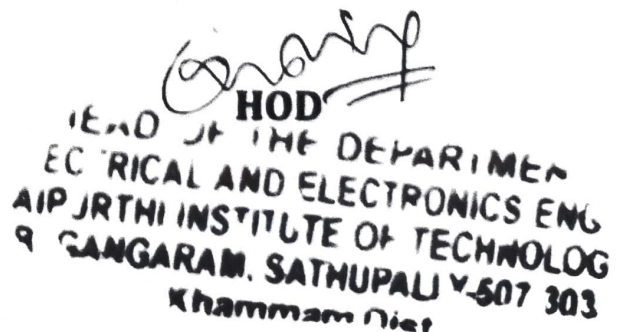 HOD
HEAD OF THE DEPARTMEN
EC RICAL AND ELECTRONICS ENG
AIP JRTHI INSTITUTE OF TECHNOLOG
GANGARAM. SATHUPALLI V-507 303
Khammam Dist